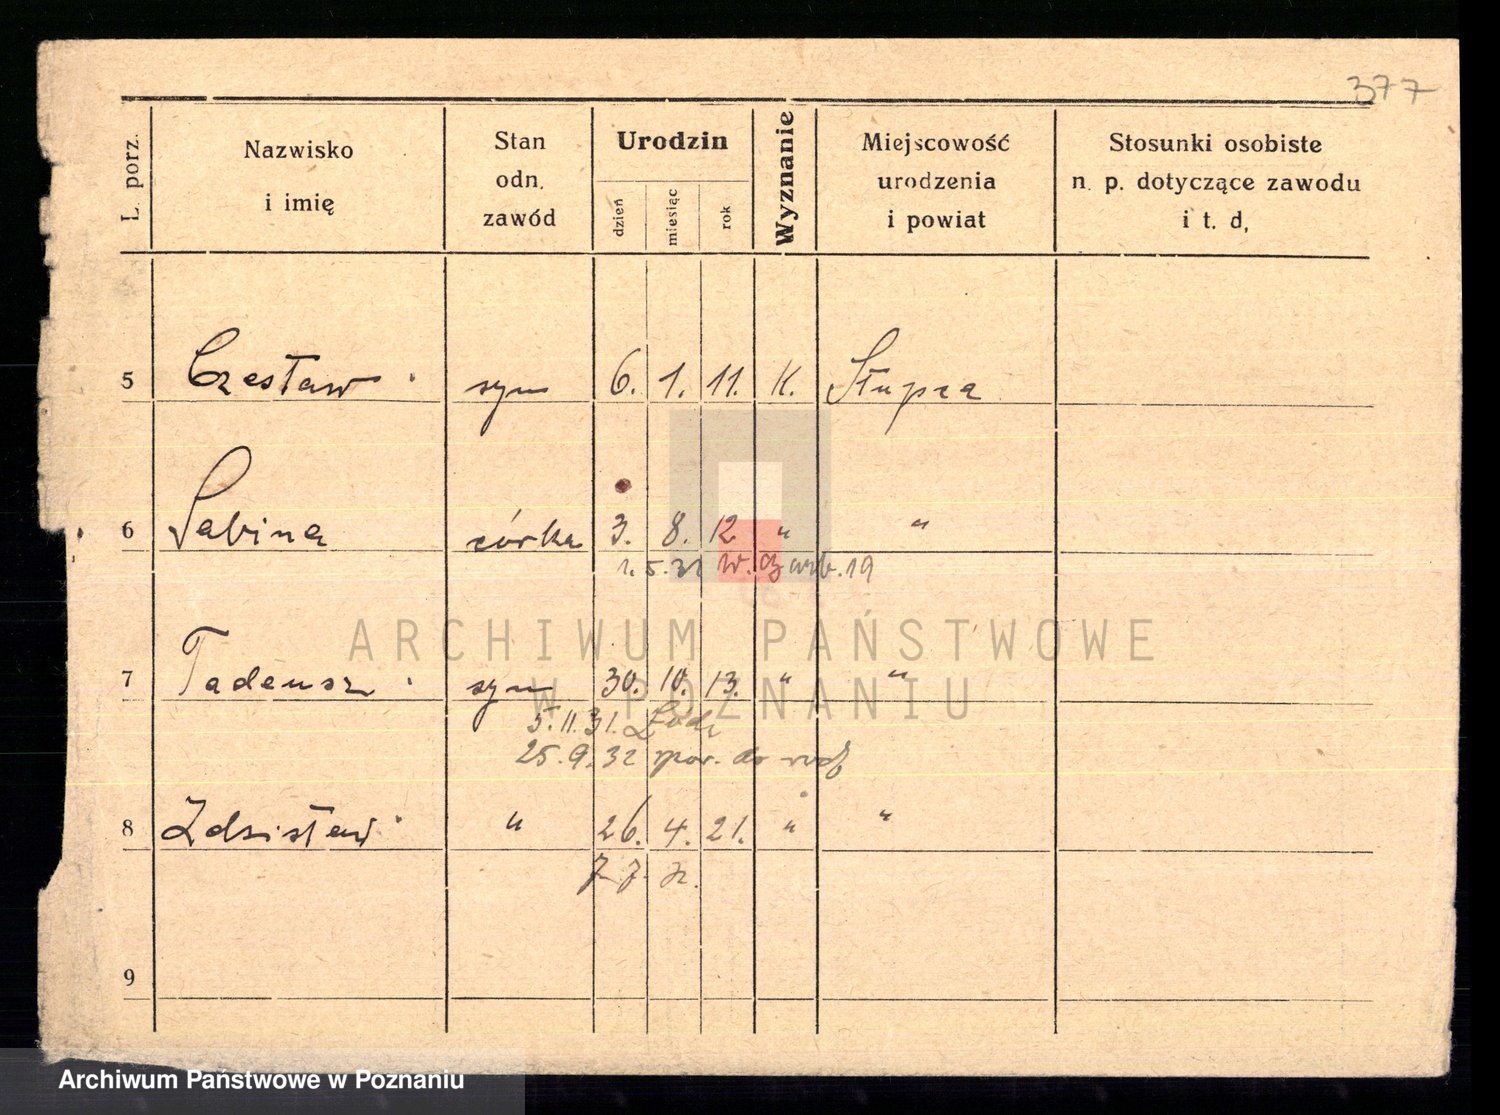 377
L. porz.
Nazwisko
i imię
Stan
odn.
zawód
Urodzin
dzień
miesiąc
rok
Wyznanie
Miejscowość
urodzenia
i powiat
Stosunki osobiste
n. p. dotyczące zawodu
i t. d.
5 Czesław syn 6. 1. 11. K. Słupca
6 Sabina córka 3. 8. 12 " "
1.5.31 W. 19
ARCHIWUM PAŃSTWOWE
W POZNANIU
7 Tadeusz syn 30. 10. 13. " "
5.11.31. Łódź
25.9.32 do
8 Zdzisław " 26. 4. 21. " "
9
Archiwum Państwowe w Poznaniu